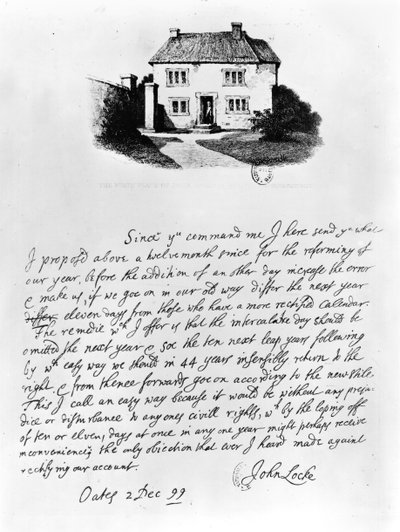 Since yu command me I here send yu what
I proposd above a twelve month since for the reforming of
our year. before the addition of an other day increase the error
& make us, if we goe on in our old way differ the next year
differ eleven days from those who have a more rectified Calendar.
The remedie wch I offer is that the intercalare day should be
omitted the next year & soe the ten next leap years following
by wch easy way we should in 44 years insensibly return to the
right & from thence forwards goe on according to the new stile.
This I call an easy way because it would be without any preju
dice or disturbance to any ones civill rights, wch by the loping off
of ten or eleven days at once in any one year might perhaps receive
inconvenience, the only obiection that ever I heard made against
rectifying our account.
John Locke
Oates 2 Dec 99